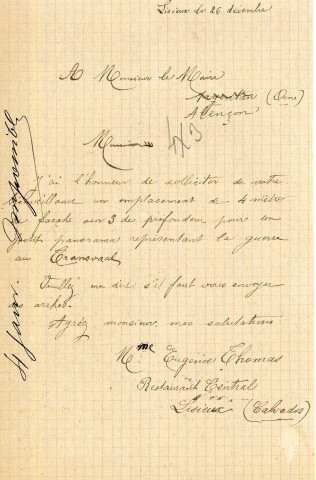 Lisieux le 26 décembre
A Monsieur le Maire
Argentan (Orne)
Alençon
Monsieur
4x3
J'ai l'honneur de solliciter de votre
bienveillance un emplacement de 4 mètres
façade sur 3 de profondeur pour un
petit panorama représentant la guerre
au Transvaal
Veuillez me dire s'il faut vous envoyer
des arrhes.
Agréez, monsieur, mes salutations
Mme Eugénie Thomas
Restaurant Central
Lisieux (Calvados)
4 janv.